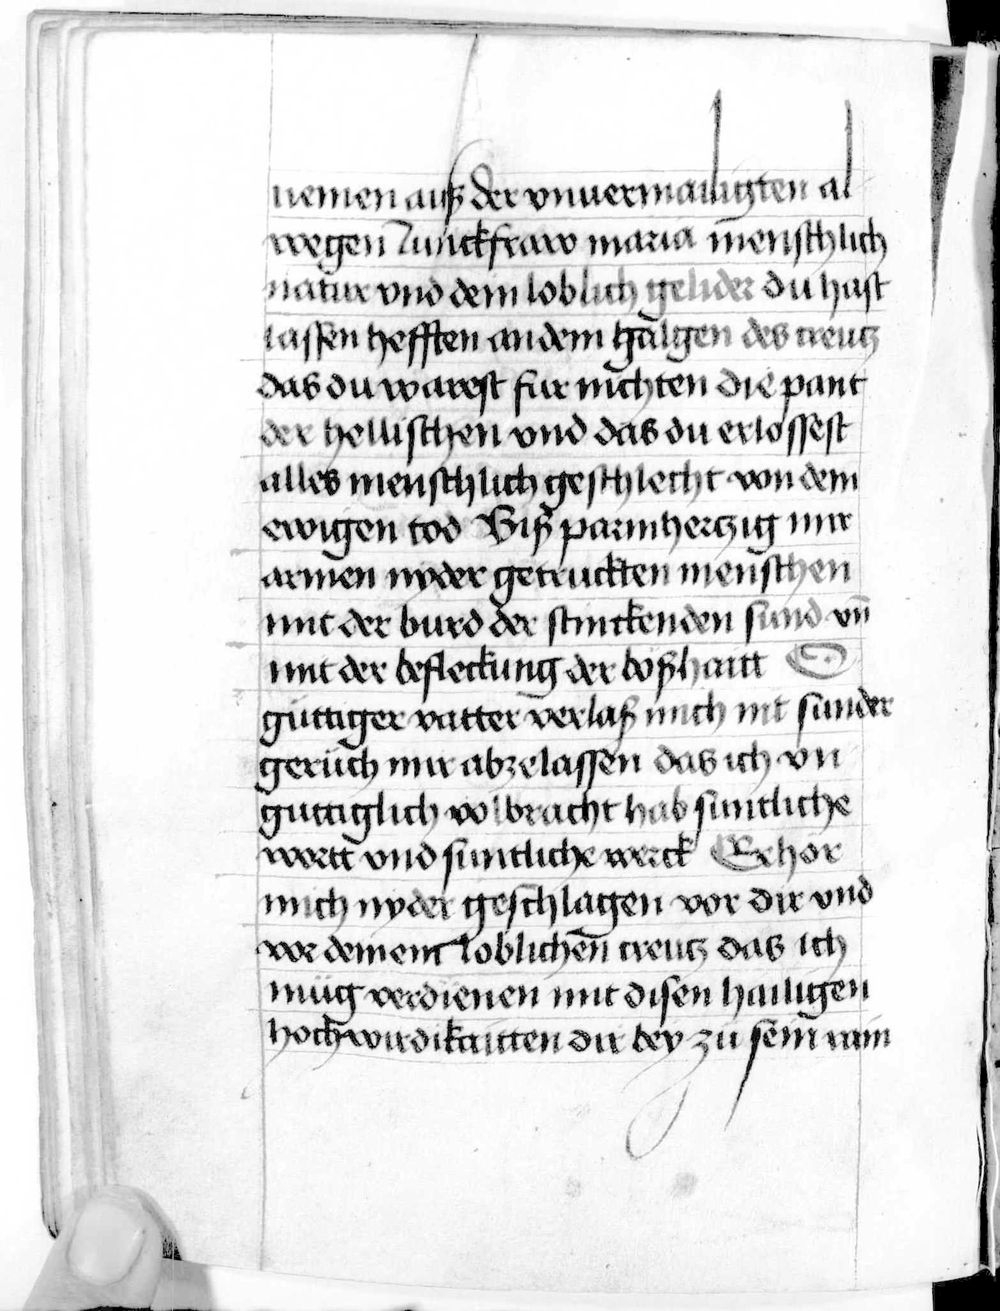 nemen auß der vnuermailigten al
wegen Junckfraw maria menschlich
natur vnd dem loblich gelider du hast
lassen hefften an dem galgen des creutz
das du warest fur nichten die pant
der hellischen vnd das du erlossest
alles menschlich geschlecht von dem
ewigen tod Biß parmhertzig mir
armen nyder getruckten menschen
mit der burd der stinckenden sund vn̄
mit der befleckung der boßhaitt O
güttiger vatter verlaß mich nit sunder
gerüch mir abzelassen das ich vn
guttiglich volbracht hab suntliche
wortt vnd suntliche werck Erhör
mich nyder geschlagen vor dir vnd
vor deinem loblichen creutz das ich
müg verdienen mit disen hailigen
hochwirdikaitten dir bey zu sein rain